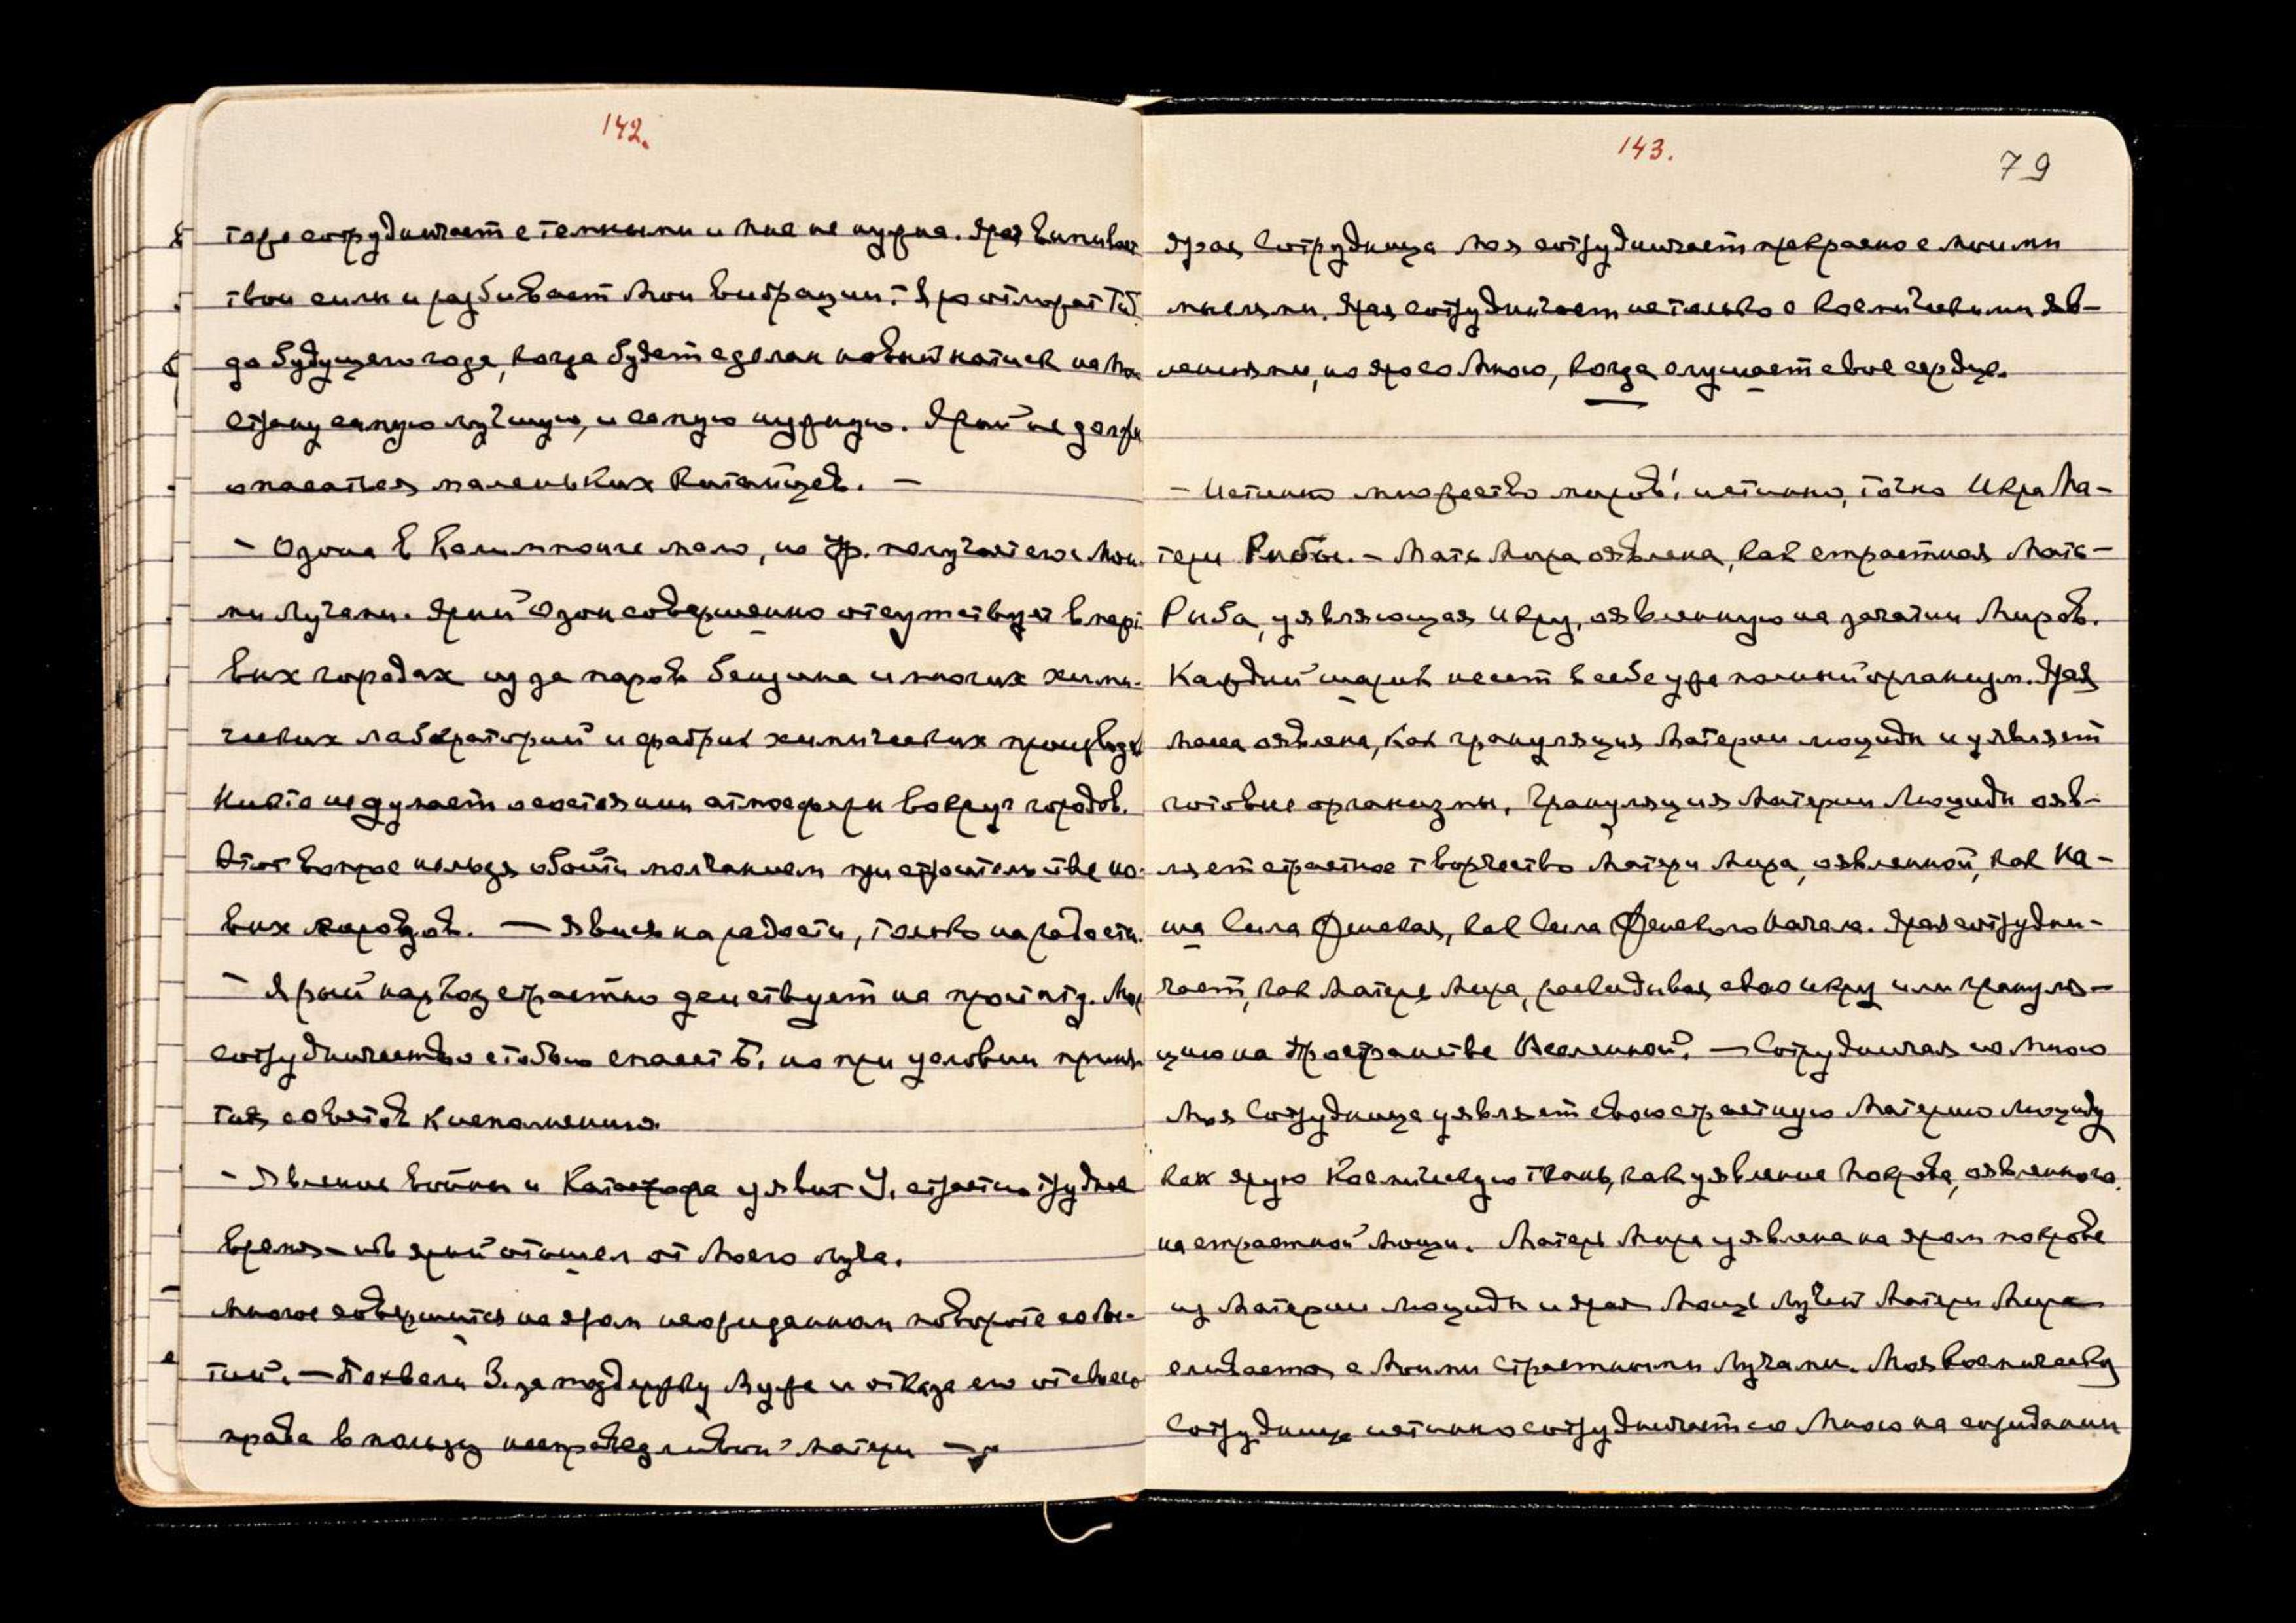 142.
сотрудничает с темными и Мне не нужна. Ярая
твои силы и разбивает Мои вибрации.
до будущего года, когда будет сделан новый натиск на
страну самую лучшую, и самую нужную. Ярый не
опасаться маленьких Китайцев. —
- Озона в Калимпонге мало, но Ур. получает его Мои-
ми Лучами. Ярый Озон совершенно отсутствует в
вых городах из за паров бензина и многих хими-
ческих лабораторий и фабрик химических
Никто не думает о состоянии атмосферы вокруг городов.
Этот вопрос нельзя обойти молчанием при строительстве но-
вых городов. — Явись на радости, только на радости.
- Ярый страстно действует на
сотрудничество с тобою спасет Б. но при условии приня-
тия советов к исполнению
- Явление Войны и Катастрофа уявит У. страстно трудное
время — ибо ярый отошел от Моего Луча.
Многое совершится на яром неожиданном повороте собы-
тий. — Похвали З. за поддержку Мужа и отказа его от своего
права в пользу несправедливой матери —
143.
79
Ярая Сотрудница Моя сотрудничает прекрасно с Моими
мыслями. Ярая сотрудничает не только с Космическими яв-
лениями, но яро со Мною, когда слушает свое сердце.
- Истинно множество миров! истинно, точно Икра Ма-
тери Рыбы. - Мать Мира оявлена, как страстная Мать-
Рыба, уявляющая икру, оявленную на зачатии Миров.
Каждый шарик несет в себе уже полный организм. Ярая
масса оявлена, как грануляция Материи Люциды и уявляет
готовые организмы. Грануляция Материи Люциды ояв-
ляет страстное творчество Матери Мира, оявленной, как На-
ша Сила Огневая, как Сила Огневого Начала. Ярая сотрудни-
чает, как Матерь Мира, раскидывая свою икру или грануля-
цию на Пространстве Вселенной. — Сотрудничая со Мною
Моя Сотрудница уявляет свою страстную Материю Люциду
как ярую Космическую ткань, как уявление Покрова, оявленного
на страстной Мощи. Матерь Мира уявлена на яром покрове
из Материи Люциды и ярая Мощь Лучей Матери Мира
сливается с Моими Страстными Лучами. Моя Космическая
Сотрудница истинно сотрудничает со Мною на созидании